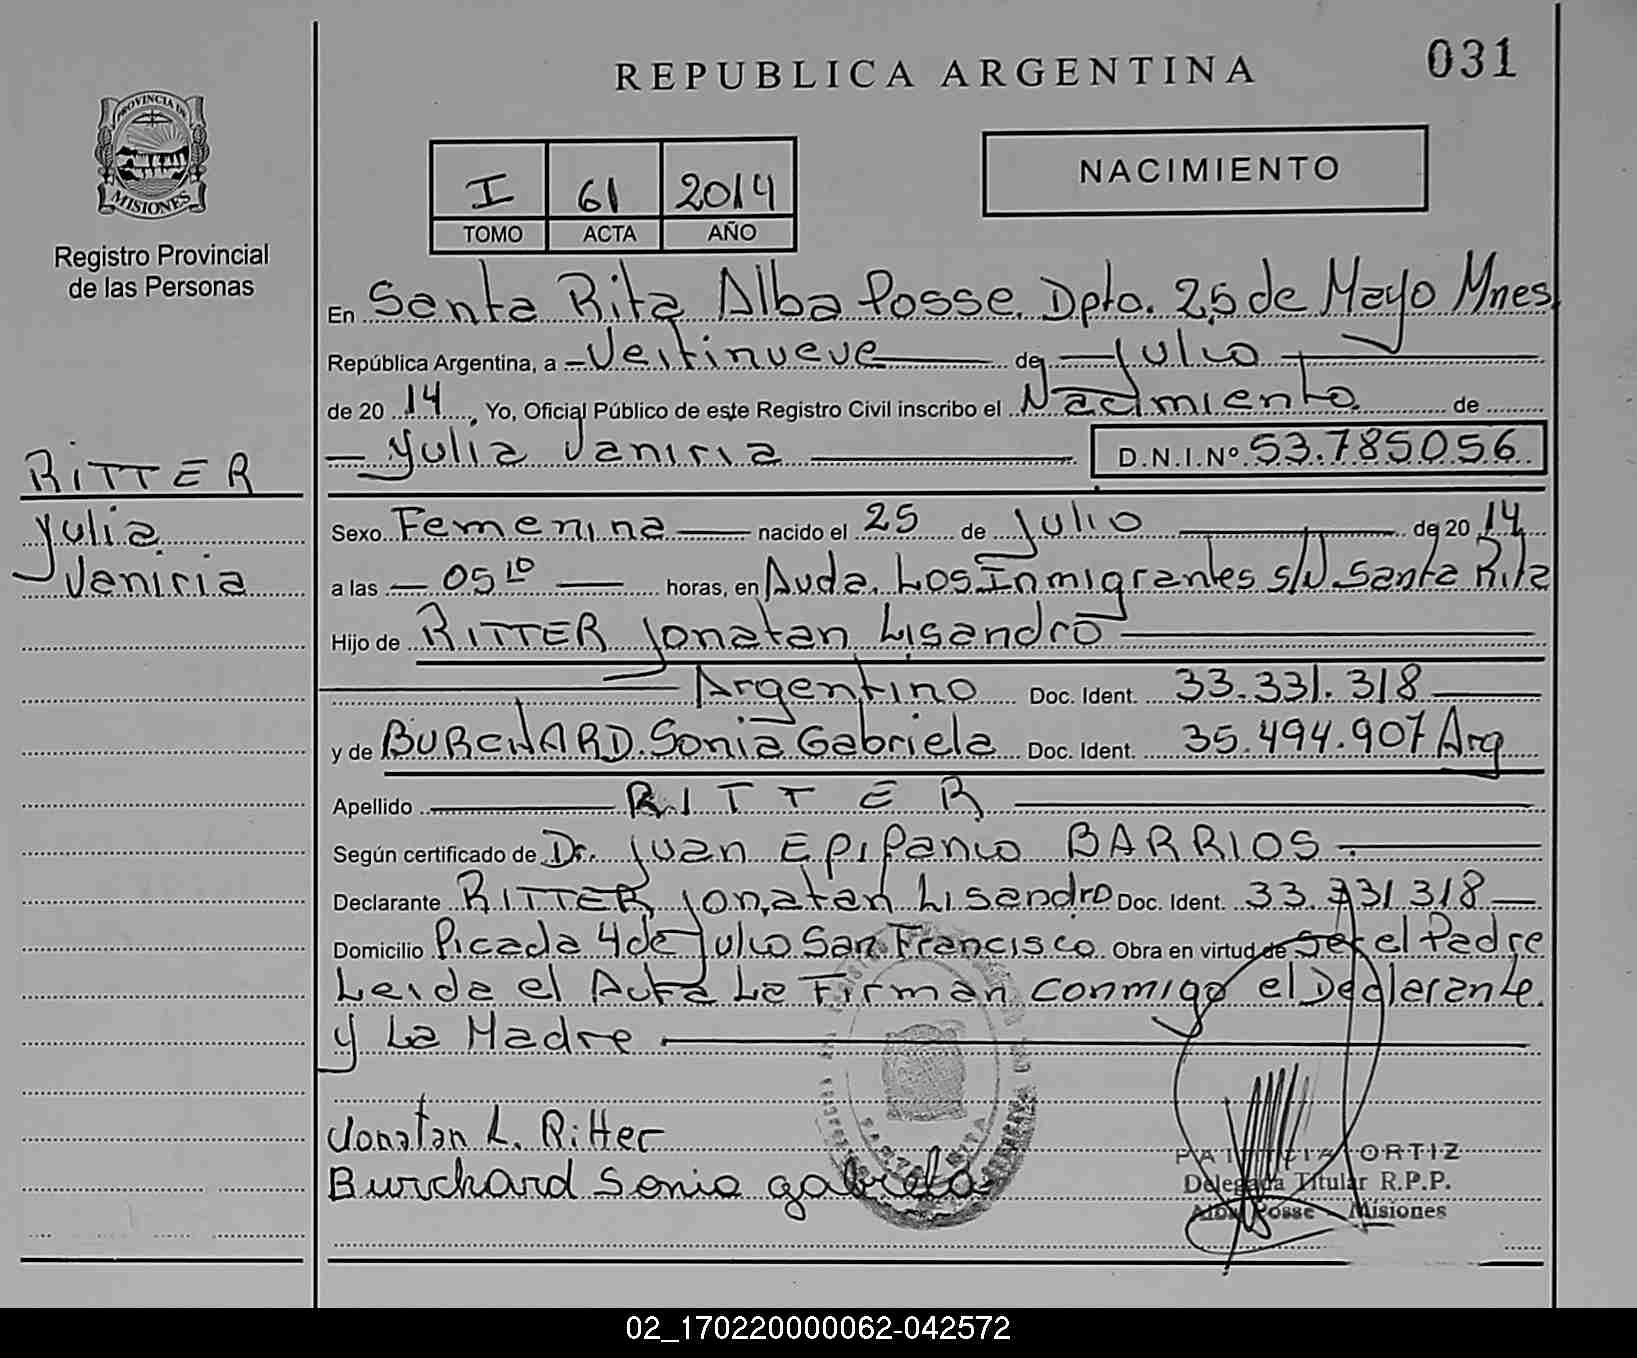 REPUBLICA ARGENTINA
031
PROVINCIA DE
MISIONES
Registro Provincial
de las Personas
I 61 2014
TOMO ACTA AÑO
NACIMIENTO
En Santa Rita Alba Posse. Dpto. 25 de Mayo Mnes.
República Argentina, a Veitinueve de Julio
de 20 14, Yo, Oficial Público de este Registro Civil inscribo el Nacimiento de
Yulia Vaniria D.N.I.Nº 53.785056
RITTER
Yulia
Vaniria
Sexo Femenina nacido el 25 de Julio de 20 14
a las 05 10 horas, en Avda. Los Inmigrantes s/N Santa Rita
Hijo de RITTER Jonatan Lisandro
Argentino Doc. Ident. 33.331.318
y de BURCHARD. Sonia Gabriela Doc. Ident. 35.494.907 Arg
Apellido RITTER
Según certificado de Dr. Juan Epifanio BARRIOS
Declarante RITTER Jonatan Lisandro Doc. Ident. 33.331318
Domicilio Picada 4 de Julio San Francisco. Obra en virtud de ser el Padre
Leida el Acta La Firman conmigo el Declarante
y La Madre
Jonatan L. Ritter
Burchard Sonia gabriela
PATRICIA ORTIZ
Delegada Titular R.P.P.
Alba Posse Misiones
SANTA RITA
02_170220000062-042572